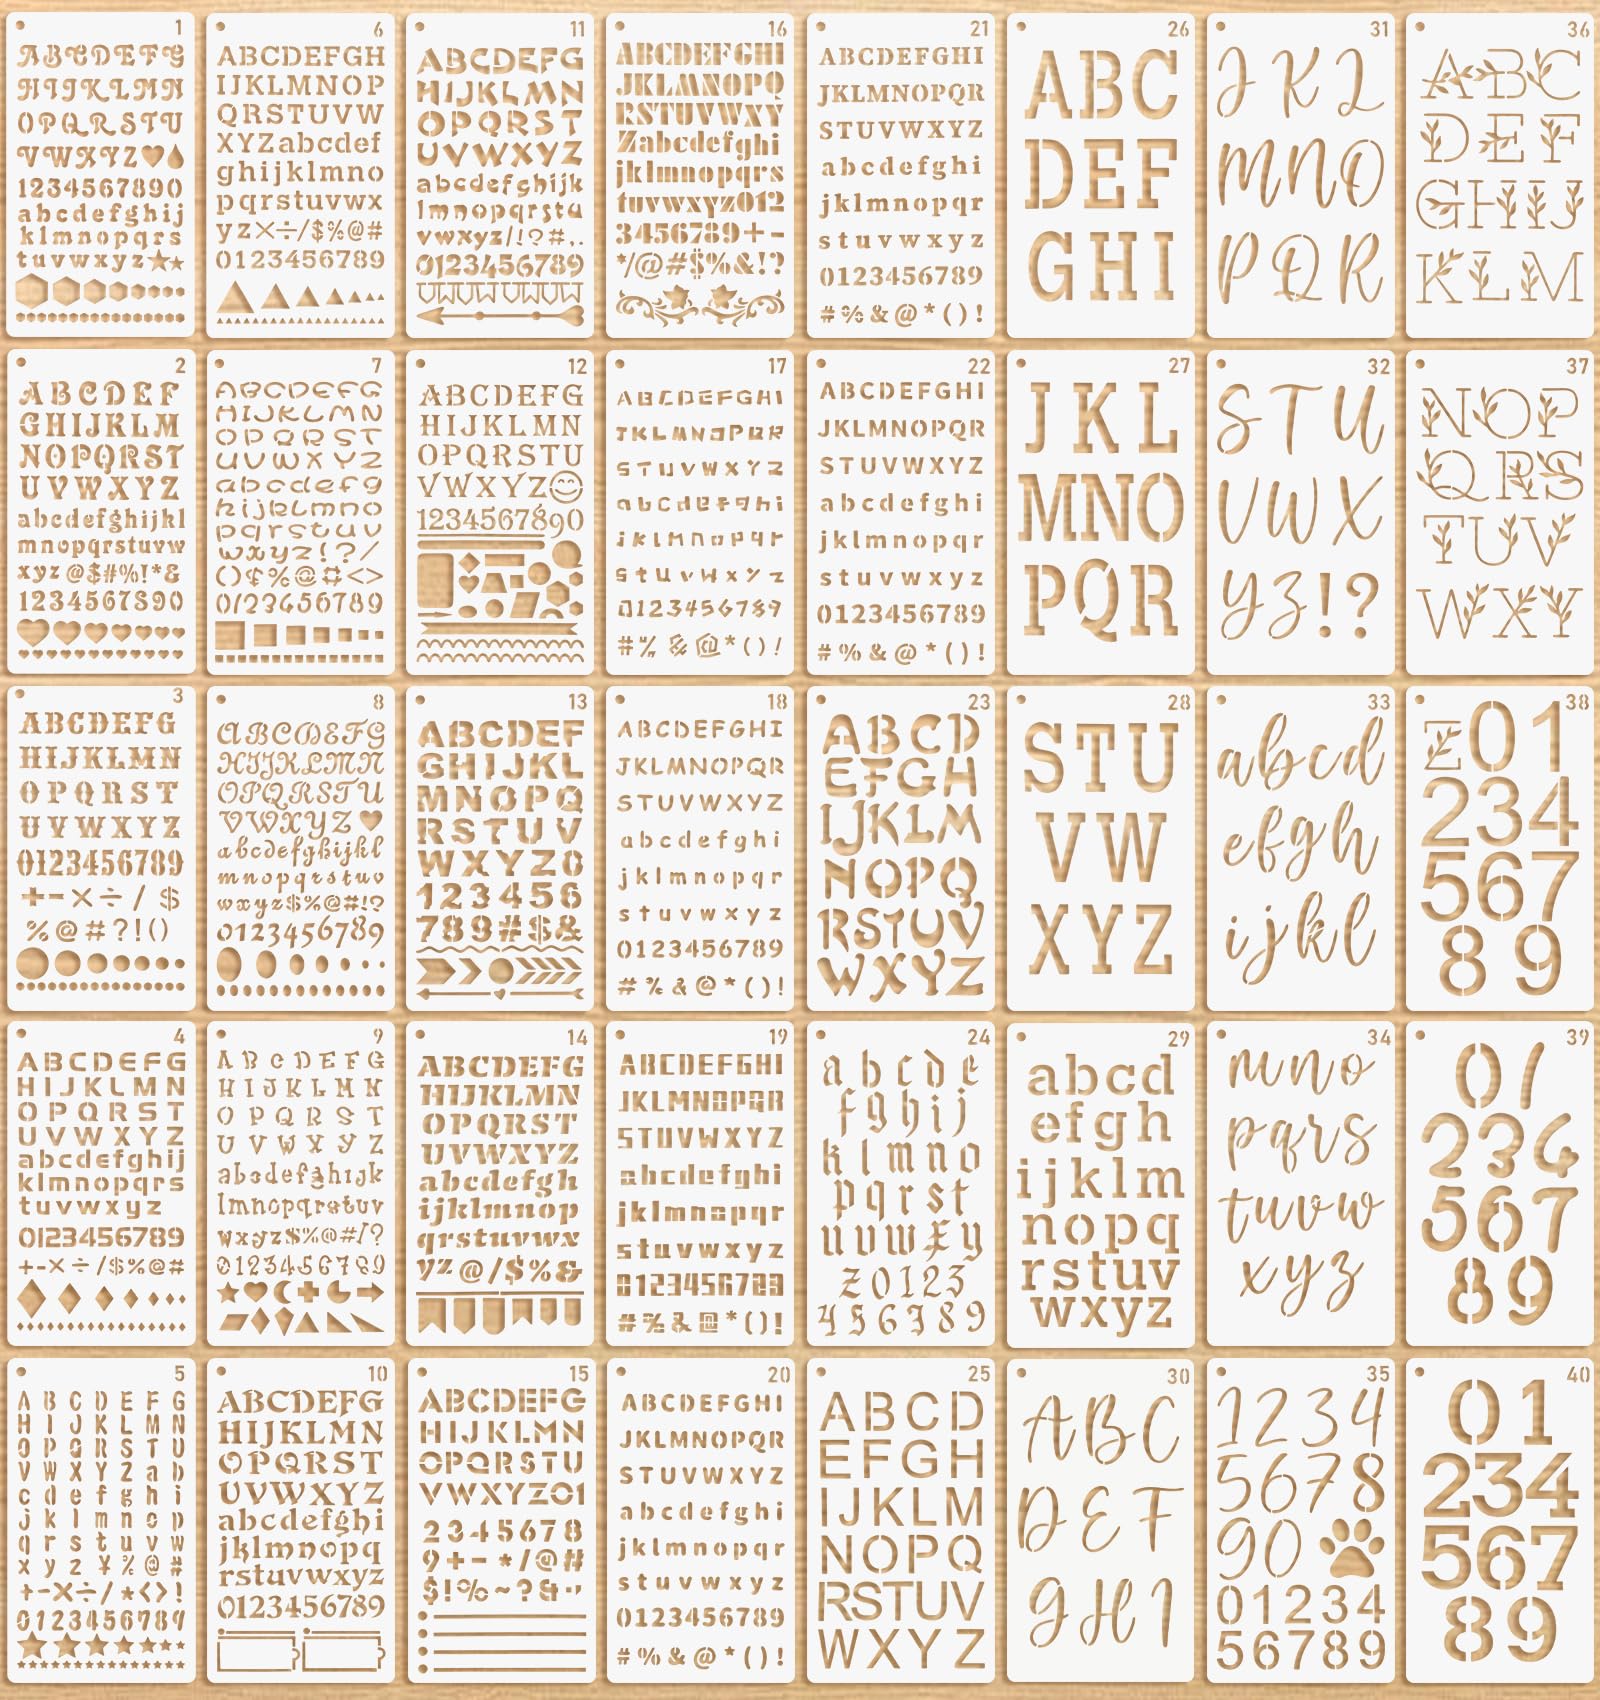 1
ABCDEFG
HIJKLMN
OPQRSTU
VWXYZ
1234567890
abcdefghij
klmnopqrs
tuvwxyz
6
ABCDEFGH
IJKLMNOP
QRSTUVW
XYZabcdef
ghijklmno
pqrstuvwx
yz×÷/$%@#
0123456789
11
ABCDEFG
HIJKLMN
OPQRST
UVWXYZ
abcdefghijk
lmnopqrstu
vwxyz/!?#,.
0123456789
16
ABCDEFGHI
JKLMNOPQ
RSTUVWXY
Zabcdefghi
jklmnopqrs
tuvwxyz012
3456789+-
*/@#$%&!?
21
ABCDEFGHI
JKLMNOPQR
STUVWXYZ
abcdefghi
jklmnopqr
stuvwxyz
0123456789
#%&@*()!
26
ABC
DEF
GHI
31
JKL
MNO
PQR
36
ABC
DEF
GHIJ
KLM
2
ABCDEF
GHIJKLM
NOPQRST
UVWXYZ
abcdefghijkl
mnopqrstuvw
xyz@$#%!*&
1234567890
7
ABCDEFG
HIJKLMN
OPQRST
UVWXYZ
abcdefg
hijklmno
pqrstuv
wxyz!?/
()$%@#<>
0123456789
12
ABCDEFG
HIJKLMN
OPQRSTU
VWXYZ
1234567890
17
ABCDEFGHI
JKLMNOPQR
STUVWXYZ
abcdefghi
jklmnopqr
stuvwxyz
0123456789
#%&@*()!
22
ABCDEFGHI
JKLMNOPQR
STUVWXYZ
abcdefghi
jklmnopqr
stuvwxyz
0123456789
#%&@*()!
27
JKL
MNO
PQR
32
STU
VWX
YZ!?
37
NOP
QRS
TUV
WXY
3
ABCDEFG
HIJKLMN
OPQRST
UVWXYZ
0123456789
+-×÷/$
%@#?!()
8
ABCDEFG
HIJKLMN
OPQRSTU
VWXYZ
abcdefghijkl
mnopqrstuv
wxyz$%@#!?
0123456789
13
ABCDEF
GHIJKL
MNOPQ
RSTUV
WXYZ0
123456
789#$&
18
ABCDEFGHI
JKLMNOPQR
STUVWXYZ
abcdefghi
jklmnopqr
stuvwxyz
0123456789
#%&@*()!
23
ABCD
EFGH
IJKLM
NOPQ
RSTUV
WXYZ
28
STU
VW
XYZ
33
abcd
efgh
ijkl
38
Z01
234
567
89
4
ABCDEFG
HIJKLMN
OPQRST
UVWXYZ
abcdefghij
klmnopqrs
tuvwxyz
0123456789
+-×÷/$%@#
9
ABCDEFG
HIJKLMN
OPQRST
UVWXYZ
abcdefghijk
lmnopqrstuv
wxyz$%@#!?
0123456789
14
ABCDEFG
HIJKLMN
OPQRST
UVWXYZ
abcdefgh
ijklmnop
qrstuvwx
yz@/$%&
19
ABCDEFGHI
JKLMNOPQR
STUVWXYZ
abcdefghi
jklmnopqr
stuvwxyz
0123456789
#%&@*()!
24
abcde
fghij
klmno
pqrst
uvwxy
z0123
456789
29
abcd
efgh
ijklm
nopq
rstuv
wxyz
34
mno
pqrs
tuvw
xyz
39
01
234
567
89
5
ABCDEFG
HIJKLMN
OPQRSTU
VWXYZab
cdefghi
jklmnop
qrstuvw
xyz¥%@#
+-×÷/*<>!
0123456789
10
ABCDEFG
HIJKLMN
OPQRST
UVWXYZ
abcdefghi
jklmnopq
rstuvwxyz
0123456789
15
ABCDEFG
HIJKLMN
OPQRSTU
VWXYZ01
2345678
9+-*/@#
$!%~?&.,
20
ABCDEFGHI
JKLMNOPQR
STUVWXYZ
abcdefghi
jklmnopqr
stuvwxyz
0123456789
#%&@*()!
25
ABCD
EFGH
IJKLM
NOPQ
RSTUV
WXYZ
30
ABC
DEF
GHI
35
1234
5678
90
01234
56789
40
01
234
567
89